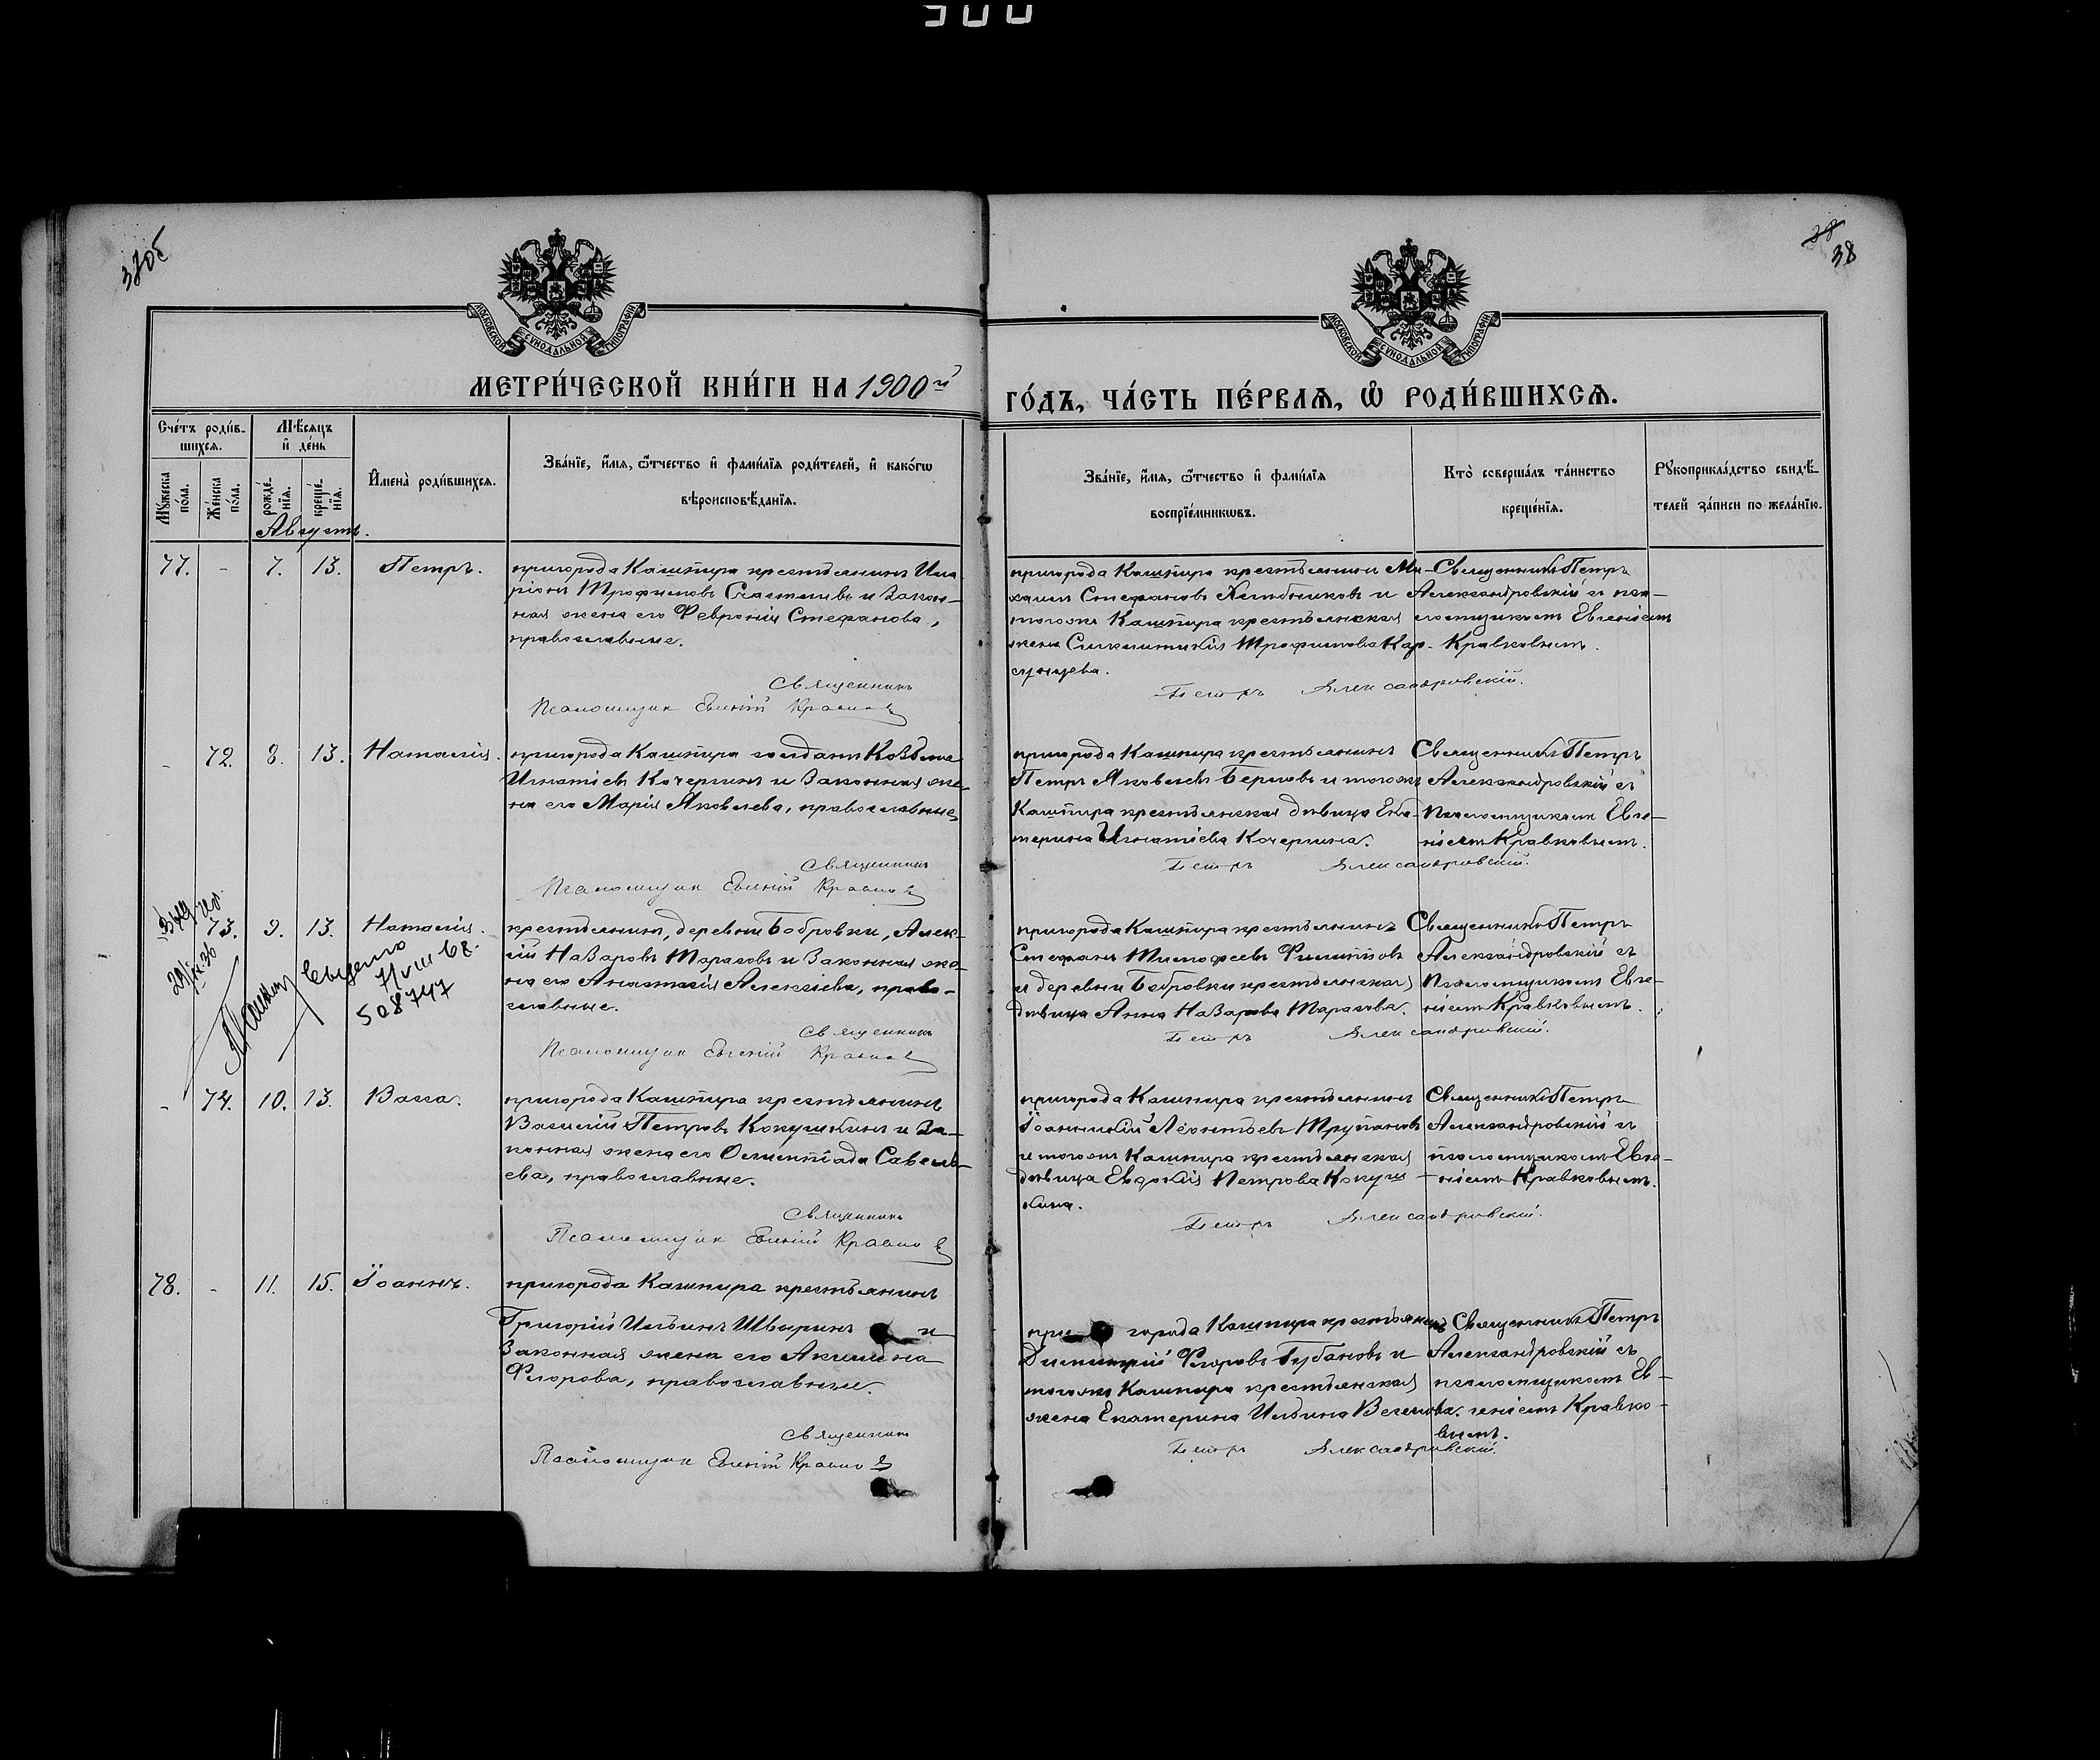 300
37об
38
38
МОСКОВСКОЙ СѴНОДАЛЬНОЙ ТИПОГРАФІИ
МОСКОВСКОЙ СѴНОДАЛЬНОЙ ТИПОГРАФІИ
МЕТРИ́ЧЕСКОЙ КНИ́ГИ НА 1900й
ГО́ДЪ, ЧА́СТЬ ПЕ́РВАѦ, Ѽ РОДИ́ВШИХСѦ.
Сче́тъ роди́в-
шихсѧ.
Мѣ́сѧцъ
и҆ де́нь
Мꙋ́жеска
по́ла.
Же́нска
по́ла.
рожде́-
нїѧ.
креще́-
нїѧ.
И҆мена̀ роди́вшихсѧ.
Зва́нїе, и҆́мѧ, ѻ҆́тчество и҆ фами́лїѧ роди́телей, и҆ како́гѡ
вѣроисповѣ́данїѧ.
Зва́нїе, и҆́мѧ, ѻ҆́тчество и҆ фами́лїѧ
воспрїе́мникѡвъ.
Кто̀ соверша́лъ та́инство
креще́нїѧ.
Рꙋкоприкла́дство свидѣ́-
телей за́писи по жела́нїю.
Августъ.
77. - 7. 13. Петръ.
пригорода Кашпира крестьянинъ Ила
ріонъ Трофимовъ Счастливъ и закон-
ная жена его Февронія Стефанова,
православные.
Священникъ
Псаломщик Евгеній Кравков
пригорода Кашпира крестьянин Ми-
хаилъ Стефановъ Хлѣбниковъ и
тогожъ Кашпира крестьянская
жена Синклитикія Трофимова Кар-
сунцева.
Петръ Александровскій.
Священникъ Петръ
Александровскій съ пса-
ломщикомъ Евгеніемъ
Кравковымъ.
- 72. 8. 13. Наталія.
пригорода Кашпира солдатъ Козьма
Игнатіевъ Кочергинъ и законная же-
на его Марія Яковлева, православные
Священникъ
Псаломщик Евгеній Кравков
пригорода Кашпира крестьянинъ
Петръ Яковлевъ Берловъ и тогожъ
Кашпира крестьянская дѣвица Ека-
терина Игнатіева Кочергина.
Петръ Александровскій.
Священникъ Петръ
Александровскій съ
псаломщикомъ Евге-
ніемъ Кравковымъ.
73. 9. 13. Наталія.
7/VIII 68.
508747
крестьянинъ, деревни Бобровки, Алек-
сій Назаровъ Тарасовъ и законная же-
на его Анастасія Алексіева, право-
славные.
Священникъ
Псаломщик Евгеній Кравков
пригорода Кашпира крестьянинъ
Стефанъ Тимофеевъ Филипповъ
и деревни Бобровки крестьянская
дѣвица Анна Назарова Тарасова.
Петръ Александровскій.
Священникъ Петръ
Александровскій съ
псаломщикомъ Евге-
ніемъ Кравковымъ.
- 74. 10. 13. Васса.
пригорода Кашпира крестьянинъ
Василій Петровъ Кокушкинъ и за-
конная жена его Олимпіада Савель-
ева, православные.
Священникъ
Псаломщик Евгеній Кравков
пригорода Кашпира крестьянинъ
Іоанникій Леонтьевъ Трупановъ
и тогожъ Кашпира крестьянская
дѣвица Евдокія Петрова Кокуш-
кина.
Петръ Александровскій.
Священникъ Петръ
Александровскій съ
псаломщикомъ Евге-
ніемъ Кравковымъ.
78. - 11. 15. Іоаннъ.
пригорода Кашпира крестьянинъ
Григорій Ильинъ Швыринъ и
законная жена его Акилина
Флорова, православные.
Священникъ
Псаломщик Евгеній Кравков
при города Кашпира крестьянинъ
Димитрій Флоровъ Губановъ и
тогожъ Кашпира крестьянская
жена Екатерина Ильина Веселова.
Петръ Александровскій.
Священникъ Петръ
Александровскій съ
псаломщикомъ Ев-
геніемъ Кравко-
вымъ.